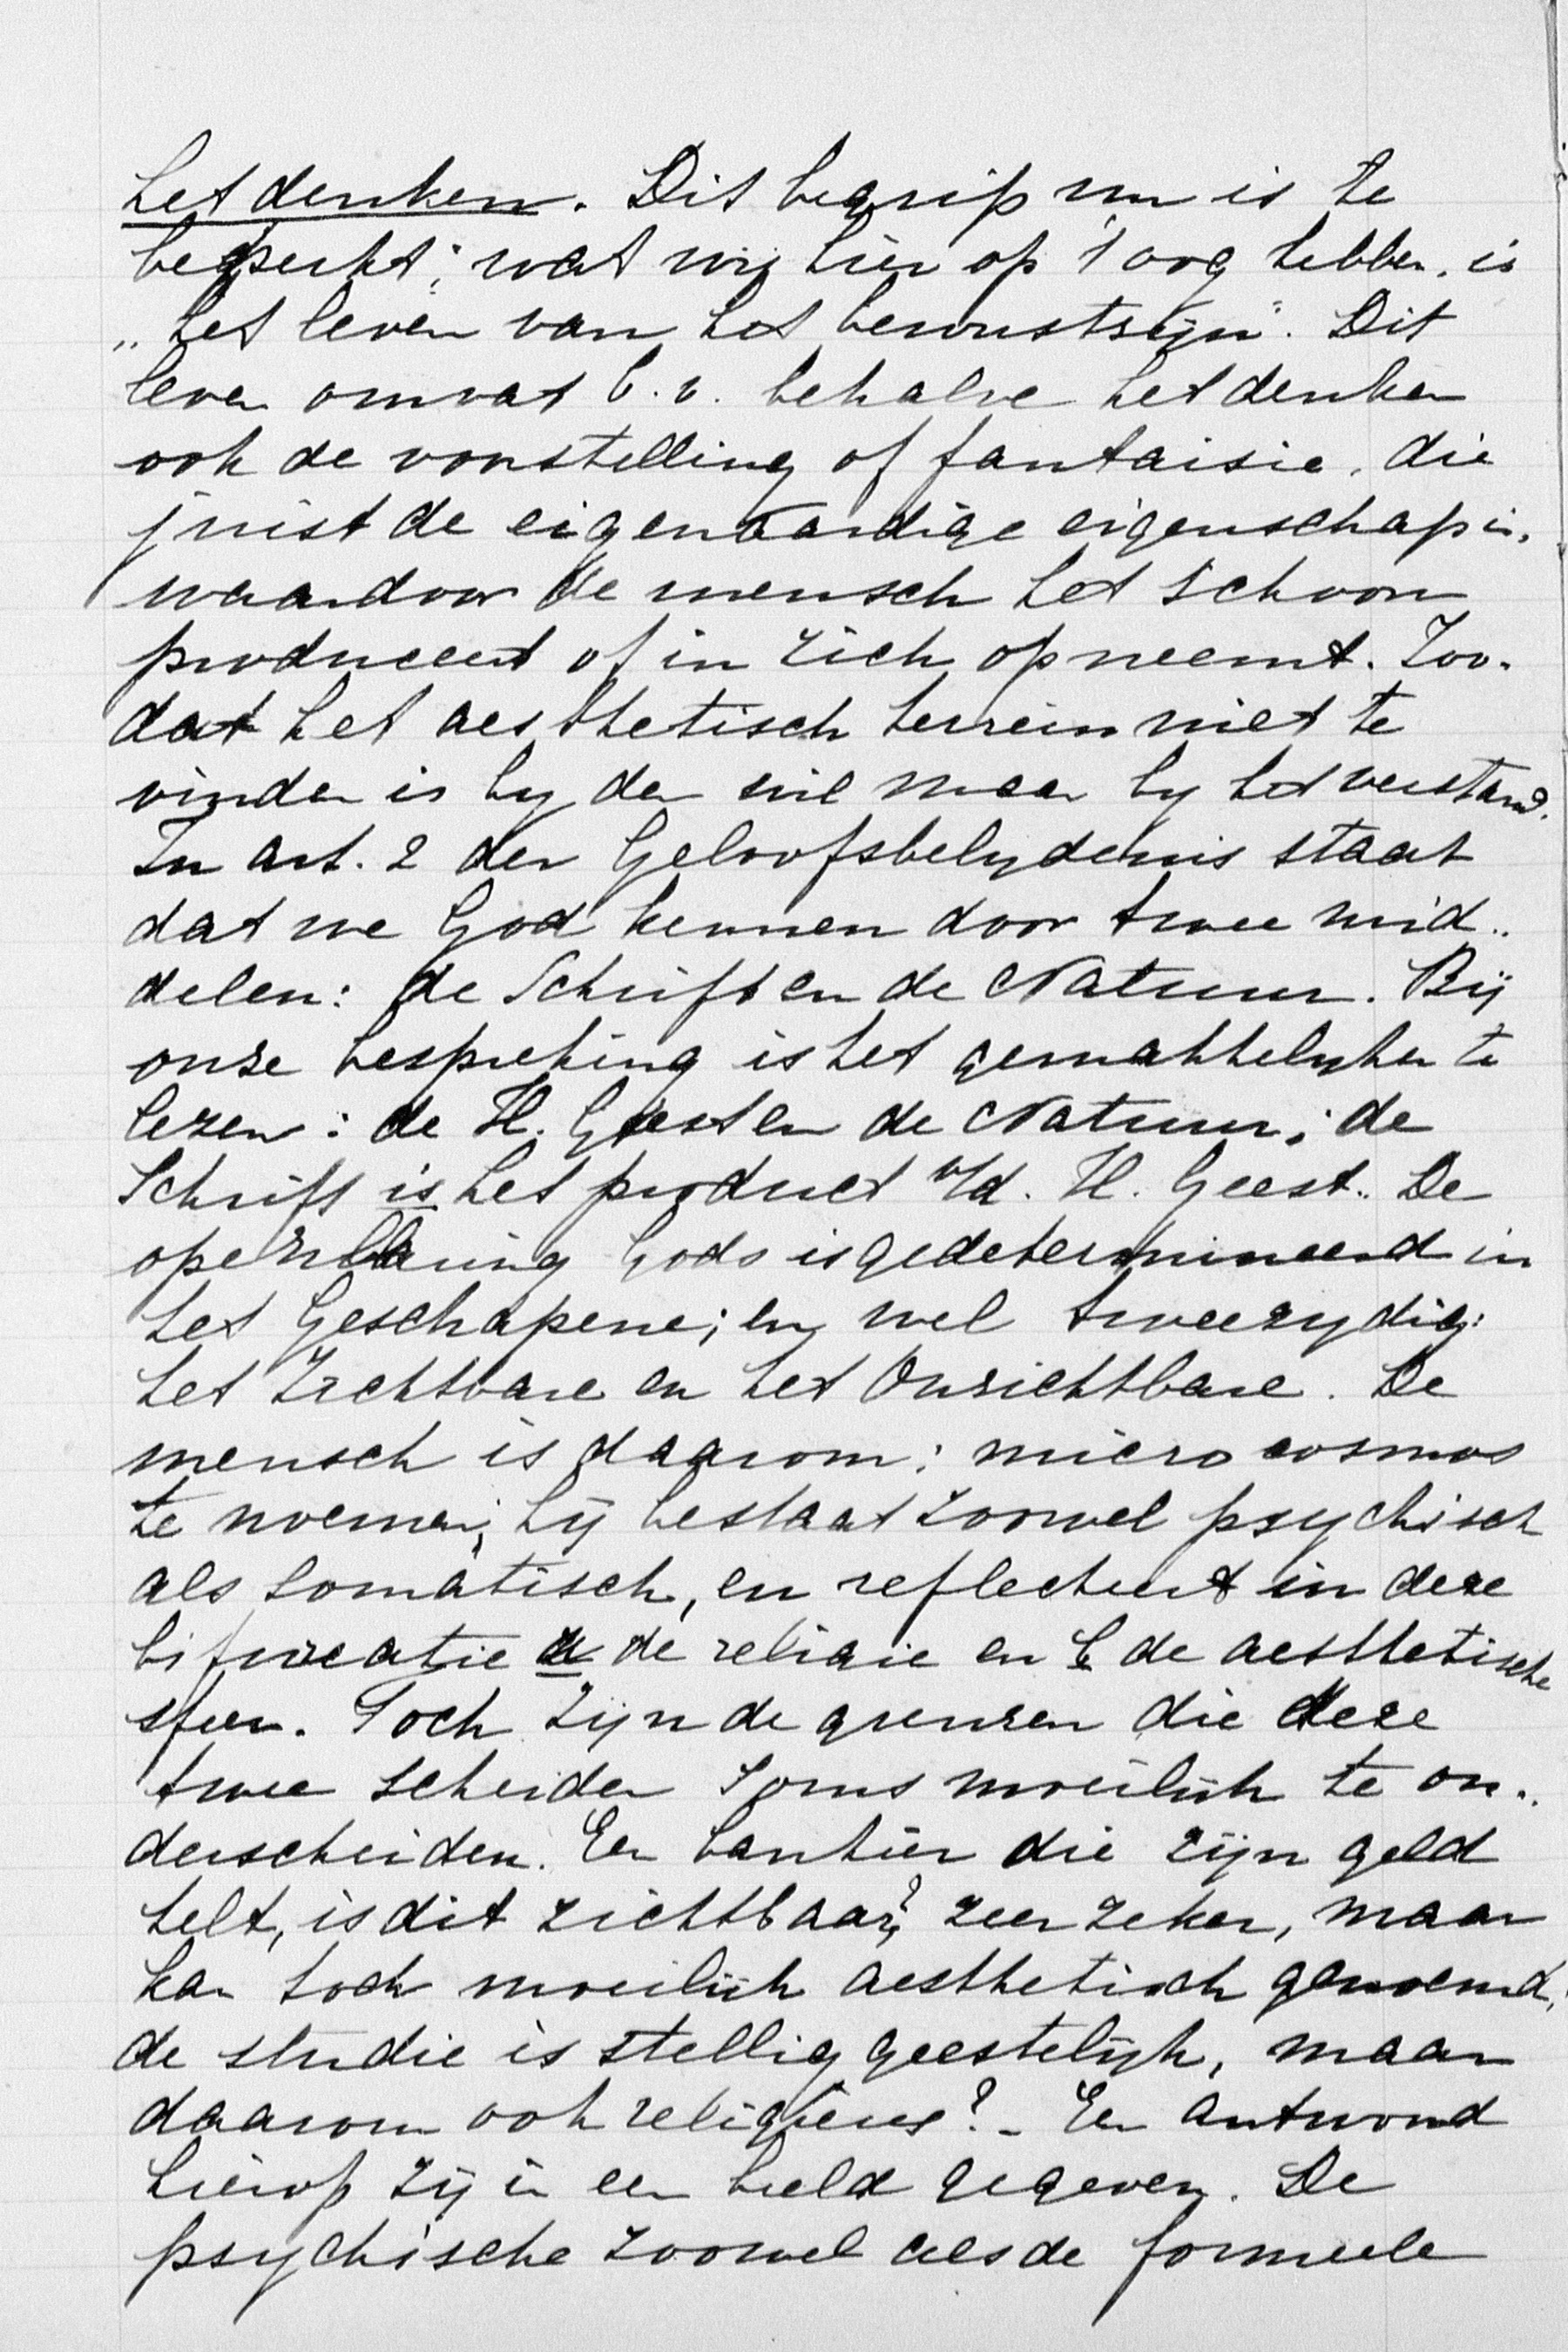 het denken. Dit begrip nu is te
beperkt; wat wij hier op 't oog hebben, is
„het leven van het bewustzijn". Dit
leven omvat b.v. behalve het denken
ook de voorstelling of fantaisie, die
juist de eigenaardige eigenschap is,
waardoor de mensch het schoon
produceert of in zich opneemt. Zoo-
dat het aesthetisch terrein niet te
vinden is by den wil maar by het verstand.
In art. 2 der Geloofsbelydenis staat
dat we God kennen door twee mid-
delen: de Schrift en de Natuur. Bij
onze bespreking is het gemakkelyker te
lezen: de H. Geest en de Natuur; de
Schrift is het product v/d. H. Geest. De
openbaring Gods is gedetermineerd in
het Geschapene; en wel tweezydig:
het Zichtbare en het Onzichtbare. De
mensch is daarom: microcosmos
te noemen; hij bestaat zoowel psychisch
als somatisch, en reflecteert in deze
bifurcatie a de religie en b de aesthetische
sfeer. Toch zijn de grenzen die deze
twee scheiden soms moeilijk te on-
derscheiden. Een bankier die zijn geld
telt, is dit zichtbaar? zeer zeker, maar
kan toch moeilijk aesthetisch genoemd,
de studie is stellig geestelijk, maar
daarom ook religieus? - Een antwoord
hierop zij in een beeld gegeven. De
psychische zoowel als de formeele